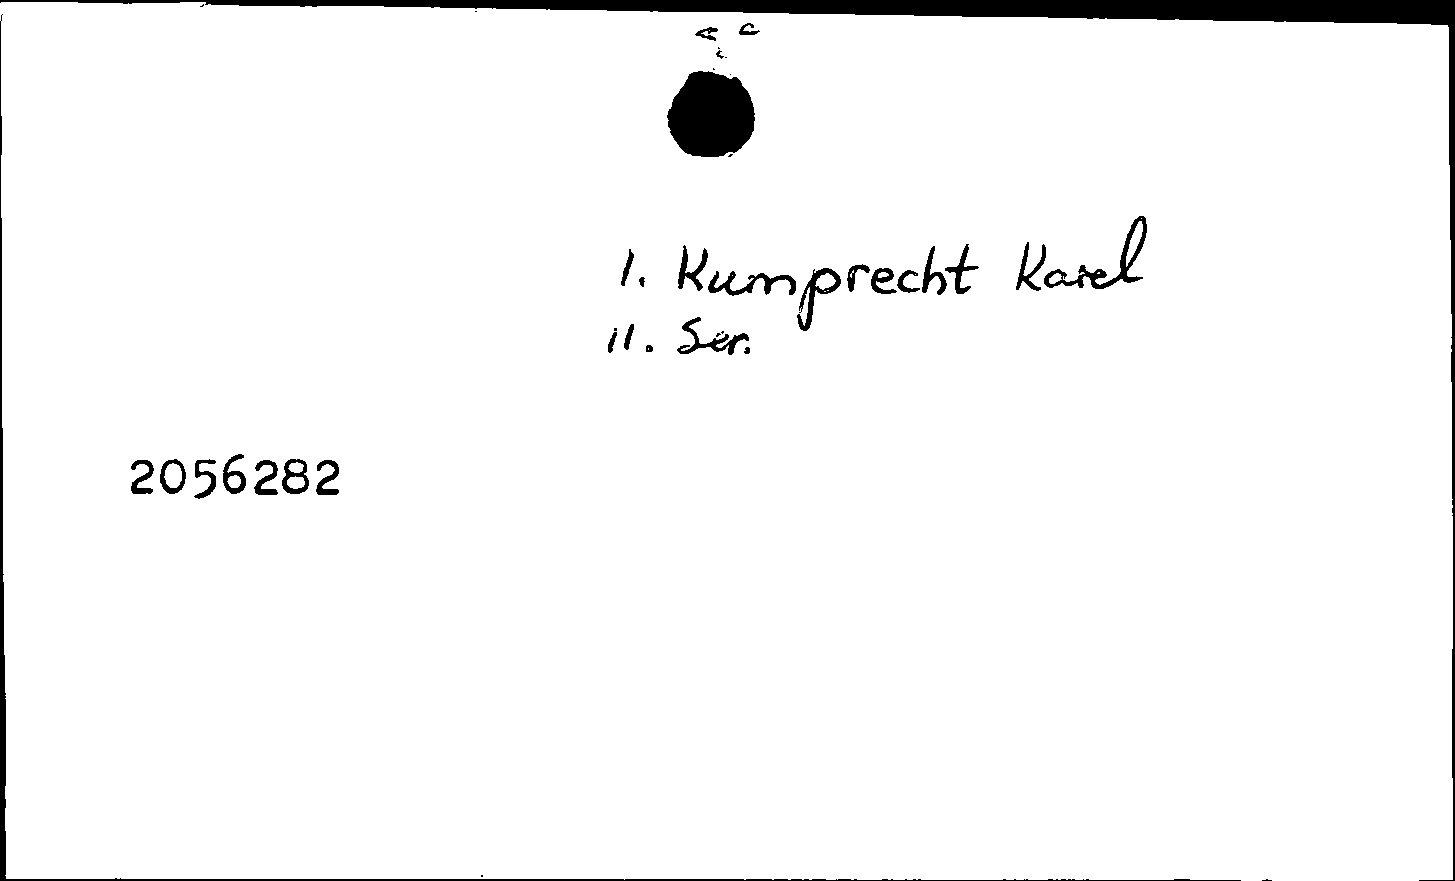 I. Kumprecht Karel
II. Ser.
2056282